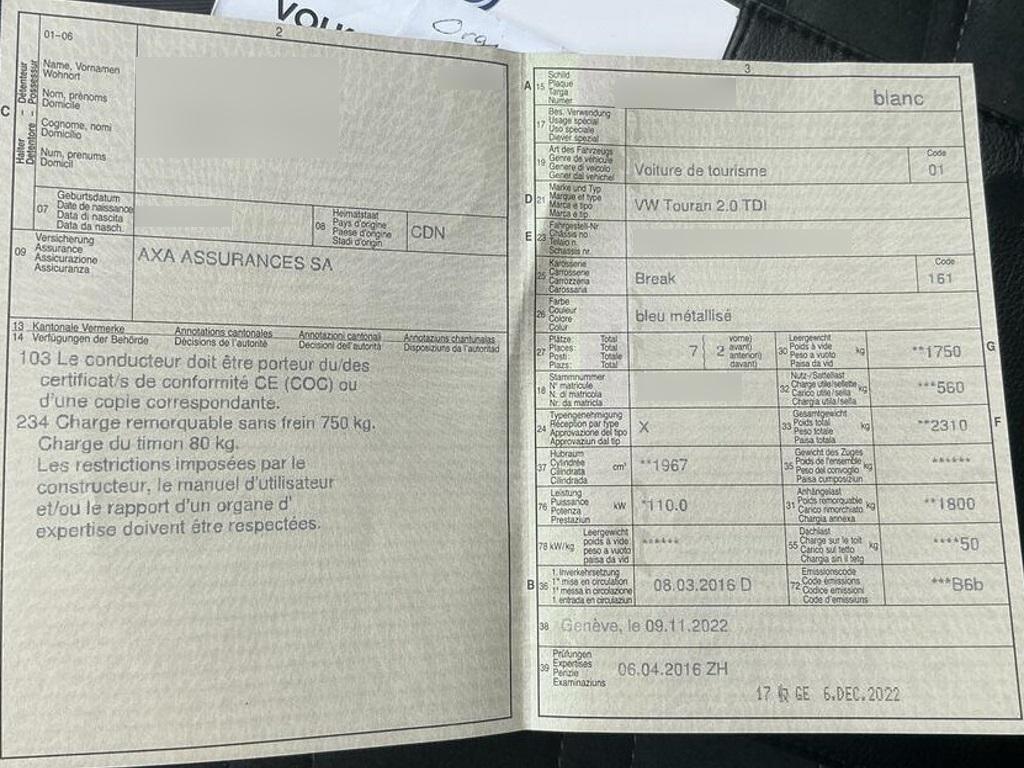 VOU
Orga
2
01–06
C
Halter – Détenteur
Detentore – Possessur
Name, Vornamen
Wohnort
Nom, prénoms
Domicile
Cognome, nomi
Domicilio
Num, prenums
Domicil
07
Geburtsdatum
Date de naissance
Data di nascita
Data da nasch.
08
Heimatstaat
Pays d'origine
Paese d'origine
Stadi d'origin
CDN
09
Versicherung
Assurance
Assicurazione
Assicuranza
AXA ASSURANCES SA
13 Kantonale Vermerke Annotations cantonales Annotazioni cantonali Annotaziuns chantunalas
14 Verfügungen der Behörde Décisions de l'autorité Decisioni dell'autorità Disposiziuns da l'autoritad
103 Le conducteur doit être porteur du/des
certificat/s de conformité CE (COC) ou
d'une copie correspondante.
234 Charge remorquable sans frein 750 kg.
Charge du timon 80 kg.
Les restrictions imposées par le
constructeur, le manuel d'utilisateur
et/ou le rapport d'un organe d'
expertise doivent être respectées.
3
A 15
Schild
Plaque
Targa
Numer
blanc
17
Bes. Verwendung
Usage spécial
Uso speciale
Diever spezial
19
Art des Fahrzeugs
Genre de véhicule
Genere di veicolo
Gener dal vehichel
Voiture de tourisme
Code
01
D 21
Marke und Typ
Marque et type
Marca e tipo
Marca e tip
VW Touran 2.0 TDI
E 23
Fahrgestell-Nr
Châssis no
Telaio n.
Schassis nr.
25
Karosserie
Carrosserie
Carrozzeria
Carossaria
Break
Code
161
26
Farbe
Couleur
Colore
Colur
bleu métallisé
27
Plätze: Total
Places: Total
Posti: Totale
Plazs: Total
7 { 2
vorne)
avant)
anteriori)
davant)
30
Leergewicht
Poids à vide
Peso a vuoto
Paisa da vid
kg
**1750
G
18
Stammnummer
N° matricule
N. di matricola
Nr. da matricla
32
Nutz-/Sattellast
Charge utile/sellette
Carico utile/sella
Chargia utila/sella
kg
***560
24
Typengenehmigung
Réception par type
Approvazione del tipo
Approvaziun dal tip
X
33
Gesamtgewicht
Poids total
Peso totale
Paisa totala
kg
**2310
F
37
Hubraum
Cylindrée
Cilindrata
Cilindrada
cm³
**1967
35
Gewicht des Zuges
Poids de l'ensemble
Peso del convoglio
Paisa cumposiziun
kg
******
76
Leistung
Puissance
Potenza
Prestaziun
kW
*110.0
31
Anhängelast
Poids remorquable
Carico rimorchiato
Chargia annexa
kg
**1800
78 kW/kg
Leergewicht
poids à vide
peso a vuoto
paisa da vid
******
55
Dachlast
Charge sur le toit
Carico sul tetto
Chargia sin il tetg
kg
****50
B 36
1. Inverkehrsetzung
1re mise en circulation
1a messa in circolazione
1. entrada en circulaziun
08.03.2016 D
72
Emissionscode
Code émissions
Codice emissioni
Code d'emissiuns
***B6b
38 Genève, le 09.11.2022
39
Prüfungen
Expertises
Perizie
Examinaziuns
06.04.2016 ZH
GE 6.DEC.2022